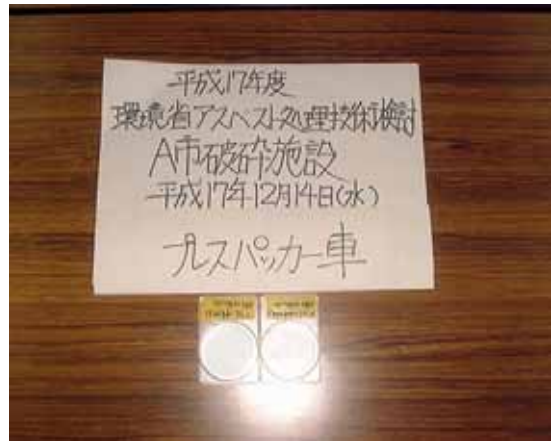 平成17年度
環境省アスベスト処理技術検討
A市破砕施設
平成17年12月14日(水)
プレスパッカー車